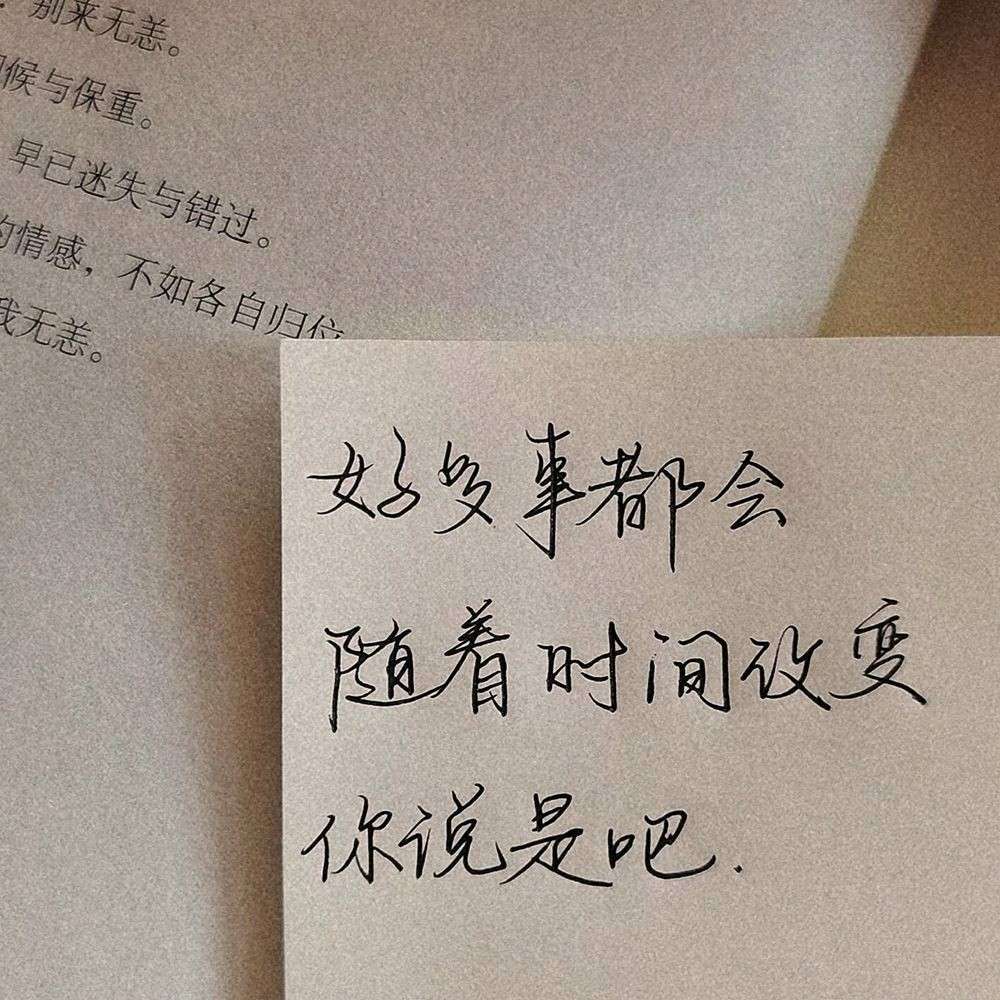 别来无恙。
候与保重。
早已迷失与错过。
的情感，不如各自归位
我无恙。
好多事都会
随着时间改变
你说是吧.